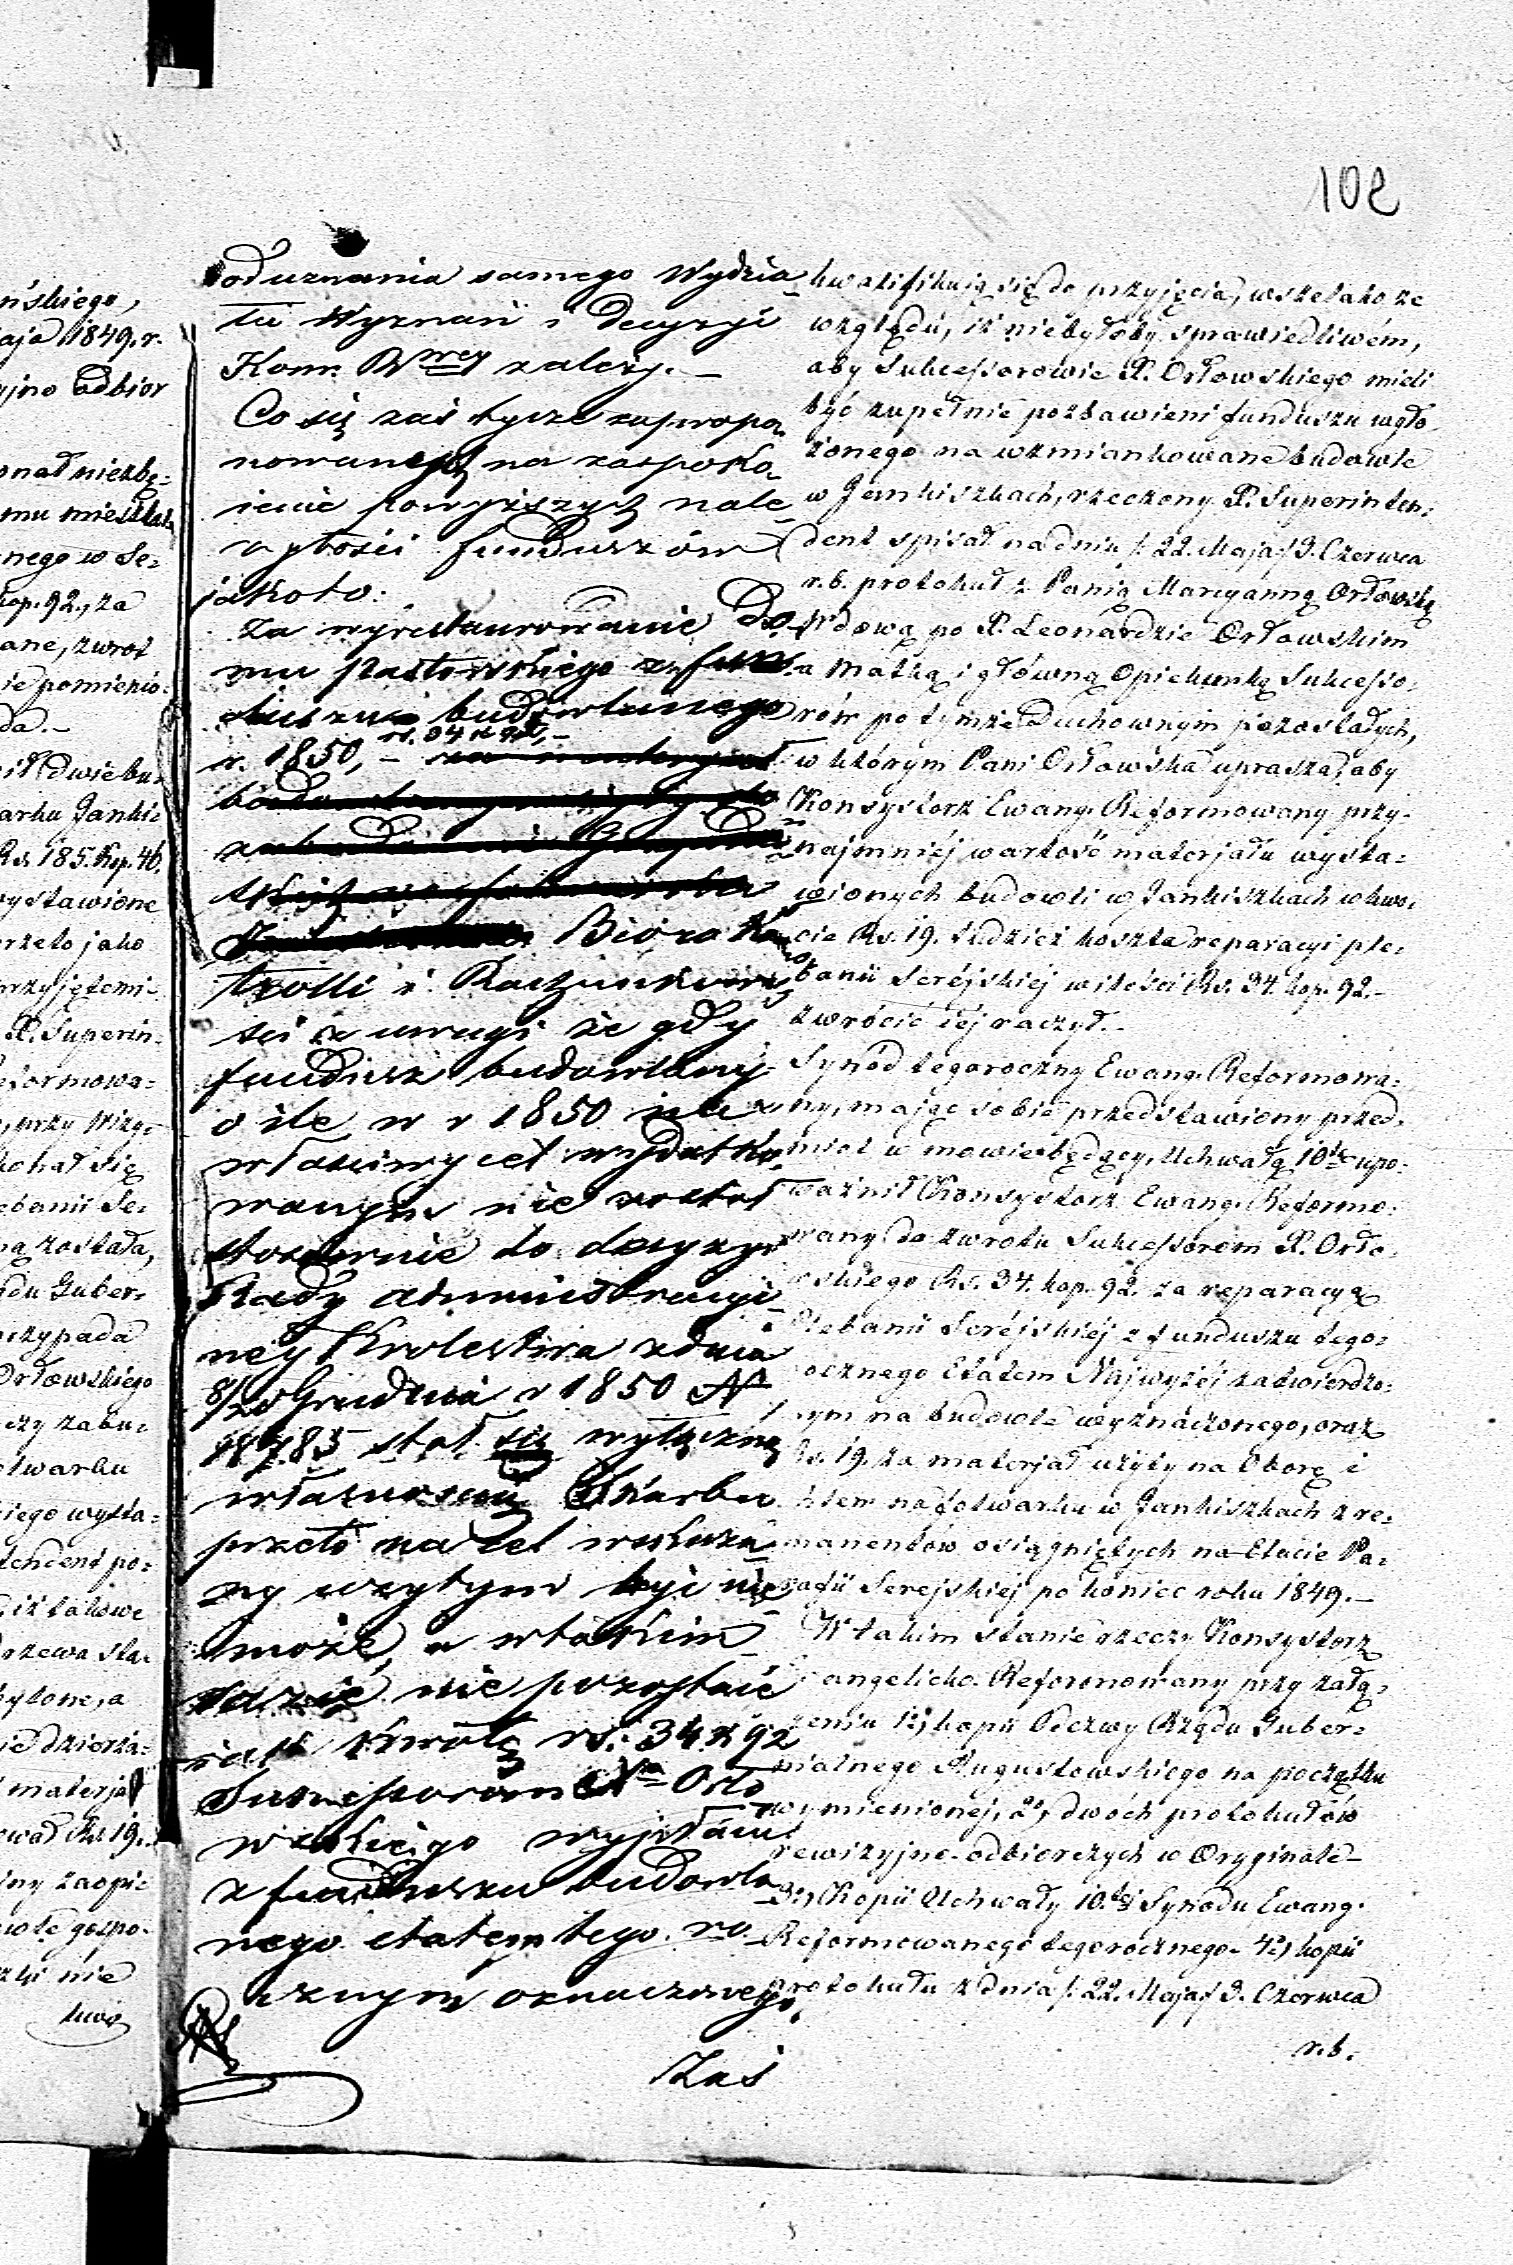 102
ńskiego,
aja 1849. r.
yjno odbior
onał niezbę-
mu mieszkal
nego w Se-
kop. 92., za
ane, zwrot
ie pomienio-
da.-
ił dwie bu-
arku Janki-
Rs. 185. kop. 46.
wystawione
rzeto jako
przyjętemi
X. Superin-
eformowa-
, przy Wizy-
konał się
ebanii Se-
ną została,
ądu Guber-
przypada
Orłowskiego
czy zabu-
olwarku
iego wysta-
tendent po-
iż takowe
rzewa sta-
bytone, a
ie dzierża-
materjał
ował Rs. 19.
iny zaopi-
wole gospo-
zki nie
kwa
od uznania samego Wydzia-
łu Wyznań i decyzyi
Kom. Rząey zależy. -
Co się zaś tycze zapropo-
nowanych na zaspoko-
ienie powyższych nale-
żytości funduszów
jakoto:
Za wyrestaurowanie Do-
mu Pastorskiego z fun-
duszu budowlanego
rs. 34 k 92, -
r. 1850, - za materyał
Bióro Kon
trolli i Rachunkowo
ści z uwagi że gdy
fundusz budowlany
o ile w r 1850 na
właściwy cel wydatko-
wanym nie został
stosownie do decyzyi
Rady Administracyi-
ney Królestwa z dnia
8/20 Grudnia r 1850 N
18783 stał się wyłączną
własnością Skarbu
przeto na cel wskaza-
ny użytym być nie
może, w takim
razie nie pozostaie
iak kwotę rs. 34 k 92
Sukcessorom Xa Orło
wskiego wypłacić
z funduszu budowla-
nego etatem tego ro-
cznym oznaczonego.
Zaś
kwalifikują się do przyjęcia, wszelako ze
względu, iż niebyłoby sprawiedliwém,
aby Sukcessorowie X. Orłowskiego mieli
być zupełnie pozbawieni funduszu wyło-
żonego na wzmiankowane budowle
w Jankiszkach, rzeczony X. Superinten-
dent spisał na dniu /: 22. Maja / 3. Czerwca
r. b. protokuł z Panią Marcyanną Orłowską
Wdową po X. Leonardzie Orłowskim
a Matką i główną Opiekunką Sukcesso-
rów po tymże Duchownym pozostałych,
w którym Pani Orłowska uprasza, aby
Konsystorz Ewang. Reformowany przy-
najmniéj wartość materjału wysta-
wionych budowli w Jankiszkach w kwo-
cie Rs. 19. tudzież koszta reparacyi ple-
banii Seréjskiéj w ilości Rs. 34. kop. 92.-
zwrócić iéj raczył.-
Synód tegoroczny Ewang. Reformowa-
ny, mając sobie przedstawiony przed-
miot w mowie będący, Uchwałą 10tą upo-
ważnił Konsystorz Ewang. Reformo-
wany do zwrotu Sukcessorom X. Orło-
wskiego Rs. 34. kop. 92. za reparacyą
Plebanii Seréjskiéj z funduszu tego-
rocznego Etatem Najwyżéj zatwierdzo-
nym na budowle wyznaczonego, oraz
Rs. 19. za materjał użyty na Oborę i
Chlew na folwarku w Jankiszkach z re-
manentów osiągniętych na Etacie Pa-
rafii Serejskiej po koniec roku 1849.-
W takim stanie rzeczy Konsystorz
Ewangelicko-Reformowany przy załą-
czeniu 1o) kopii Odezwy Rządu Guber-
nialnego Augustowskiego na początku
wymienionej, 2o) dwóch protokułów
rewizyjno-odbiorczych w Oryginale-
3o) Kopii Uchwały 10téj Synodu Ewang.
Reformowanego tegorocznego- 4o) kopii
protokułu z dnia /: 22. Maja / 3. Czerwca
r. b.